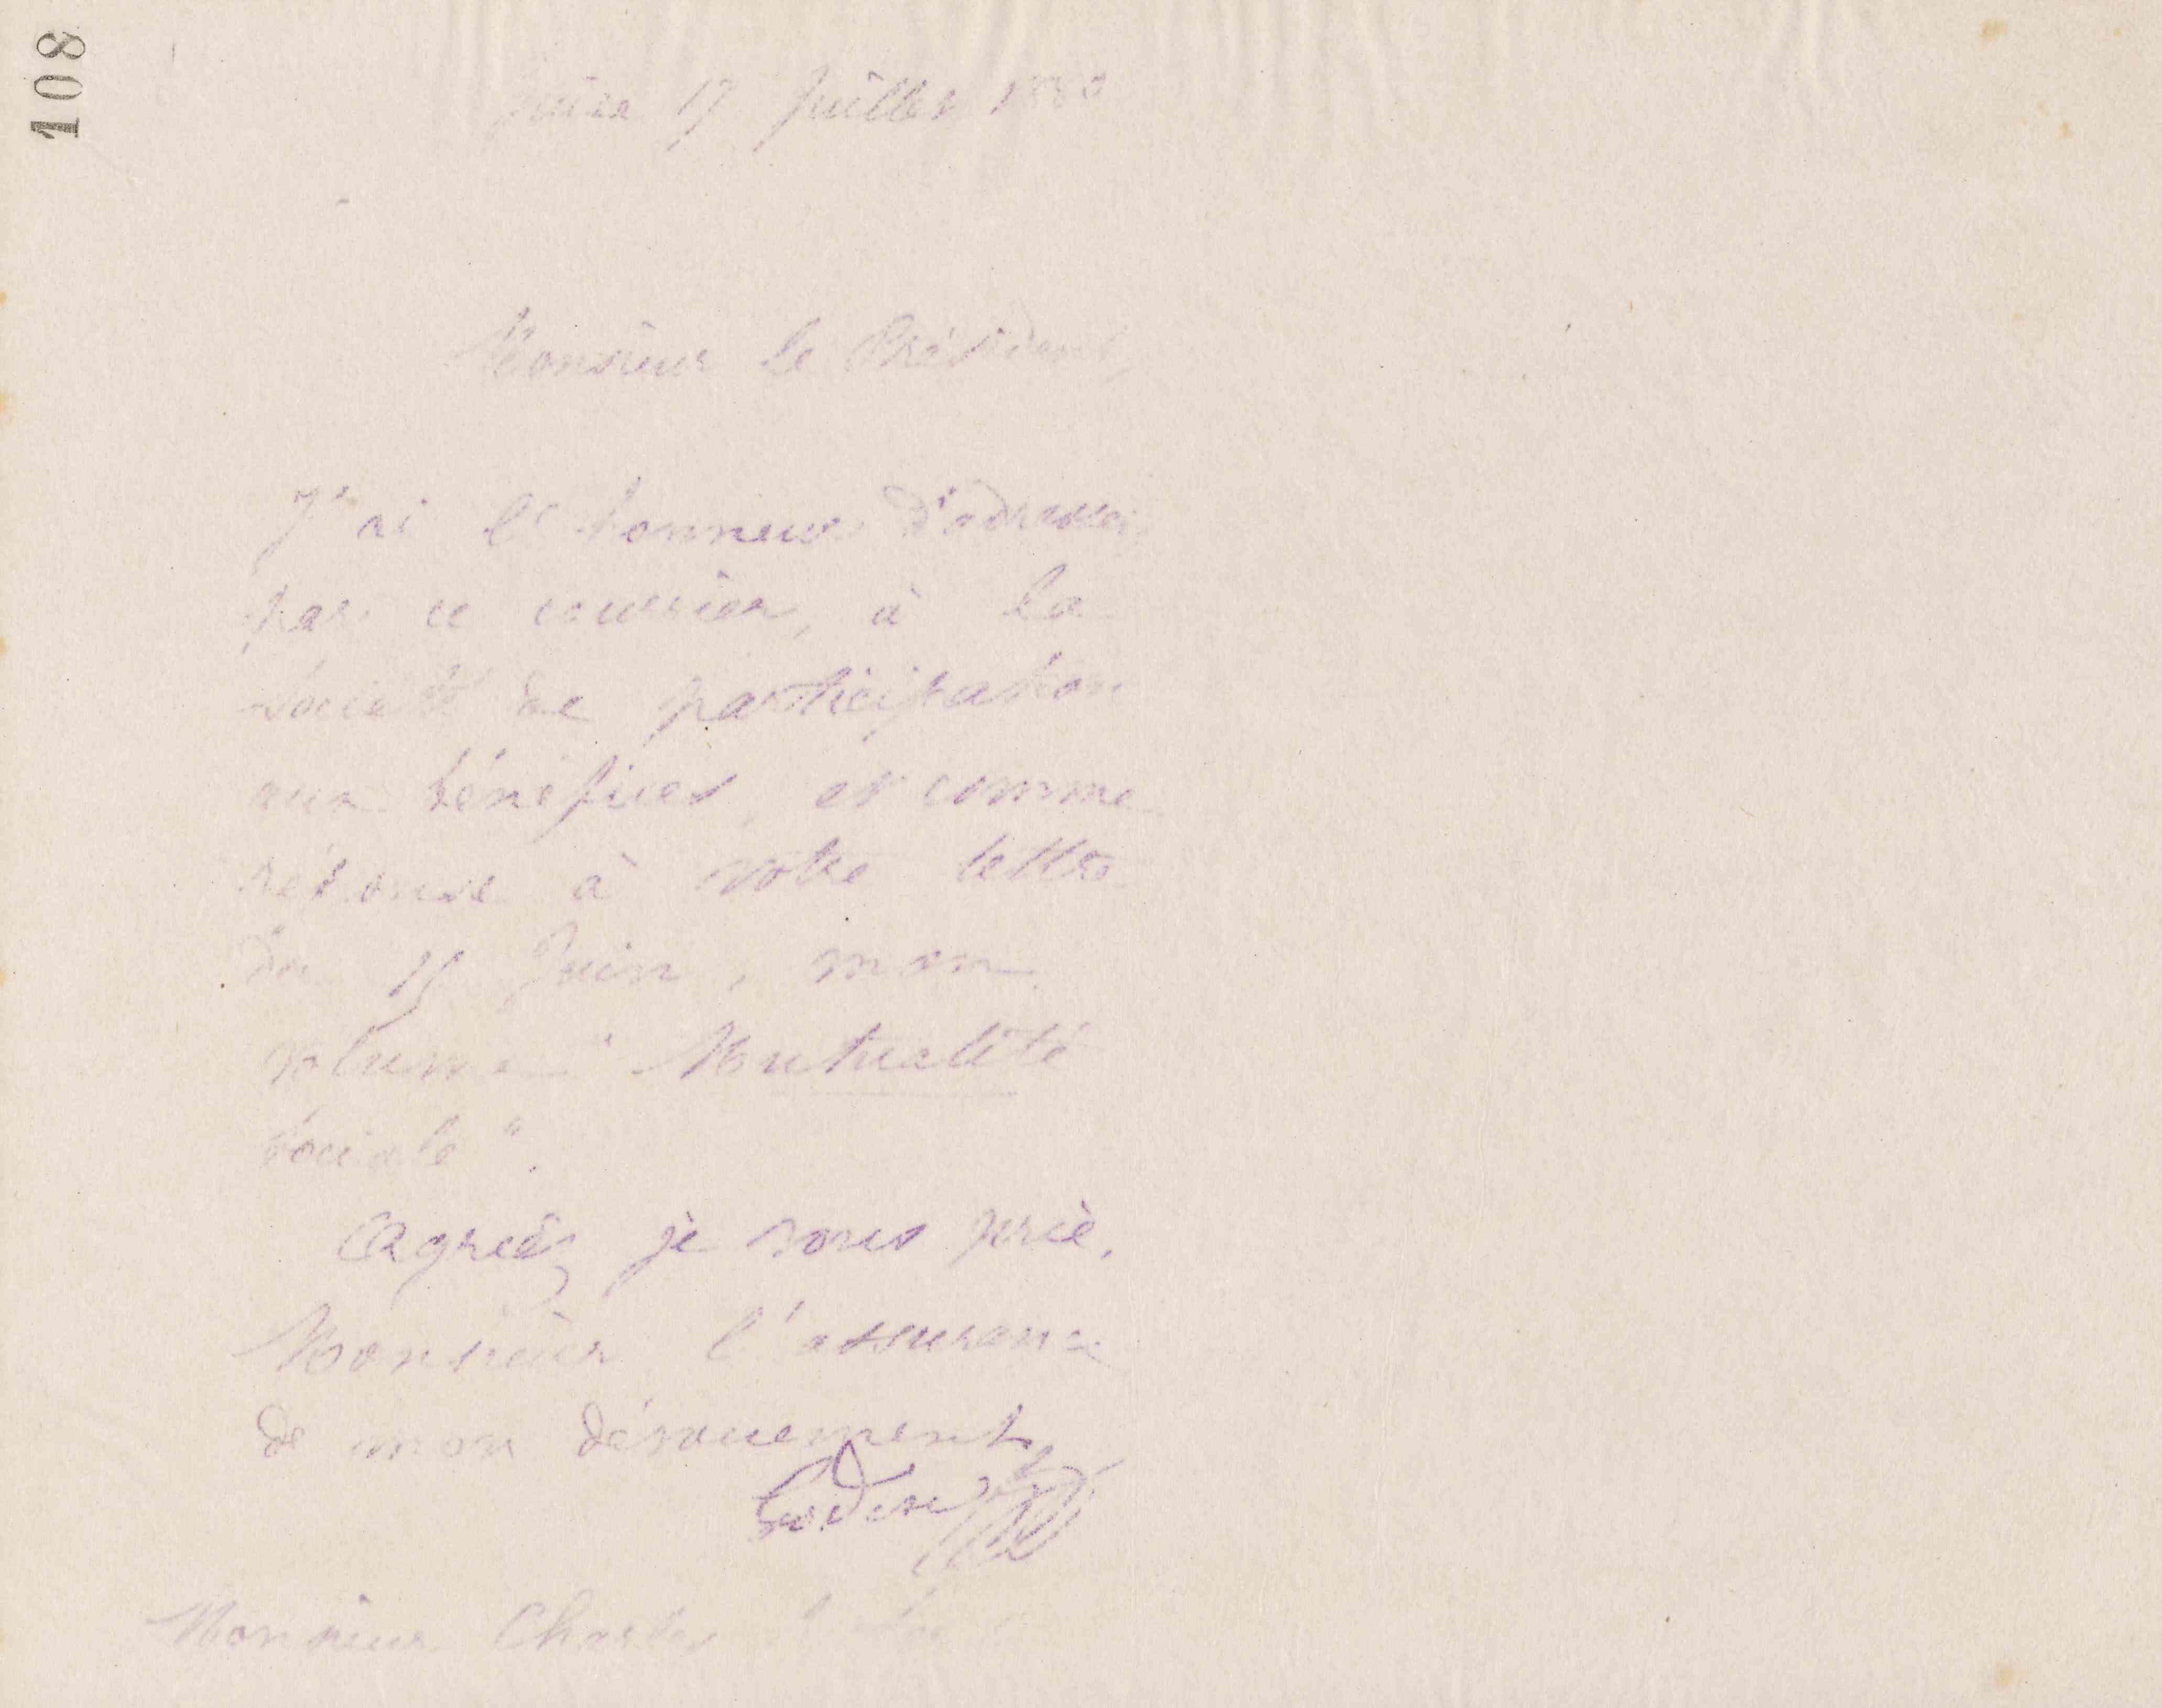 108
Guise 17 Juillet 1880
Monsieur le Président,
J'ai l'honneur d'adresser
par ce courrier, à la
société de participation
aux bénéfices, et comme
réponse à votre lettre
du 15 Juin, mon
volume "Mutualité
sociale".
Agréez je vous prie,
Monsieur l'assurance
de mon dévouement
Godin
Monsieur Charles